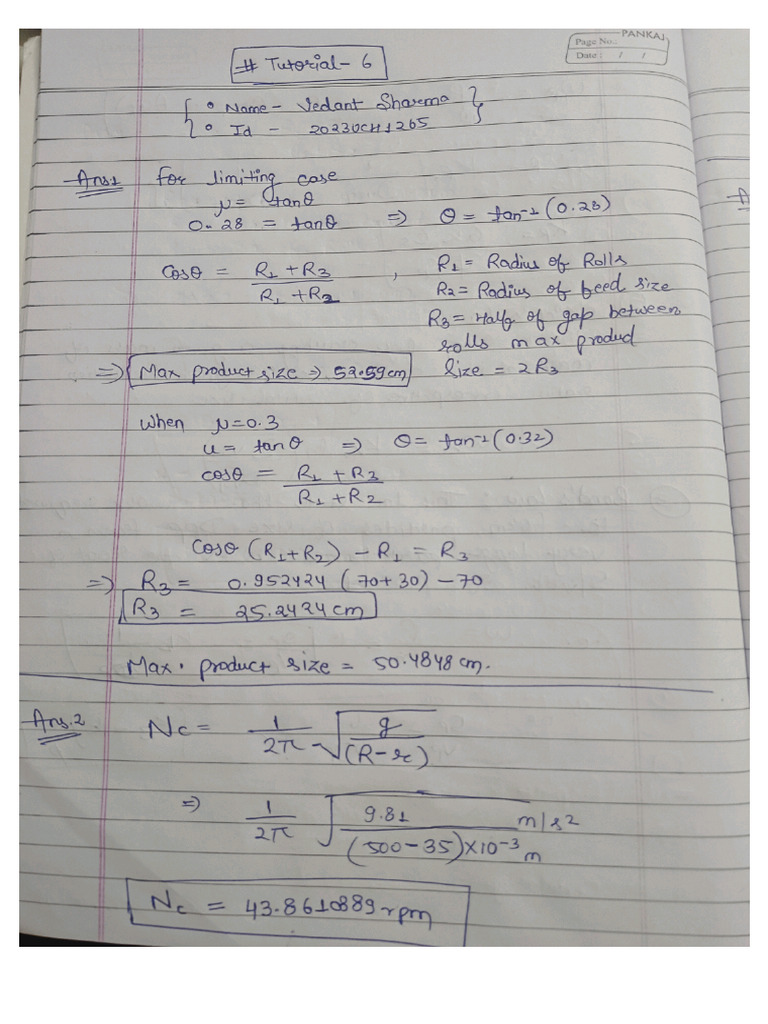 PANKAJ
Page No.:
Date: / /
# Tutorial - 6
• Name - Vedant Sharma
• Id - 2023UCH1265
Ans1 For limiting case
μ = tanθ
0.28 = tanθ ⇒ θ = tan⁻¹(0.28)
Cosθ = (R1 + R3)/(R1 + R2) , R1 = Radius of Rolls
R2 = Radius of feed size
R3 = Half of gap between
rolls max product
⇒ Max product size ⇒ 52.59cm size = 2R3
When μ=0.3
u = tanθ ⇒ θ = tan⁻¹(0.32)
cosθ = (R1 + R3)/(R1 + R2)
Cosθ (R1+R2) - R1 = R3
⇒ R3 = 0.952424 (70+30) - 70
R3 = 25.2424cm
Max. product size = 50.4848 cm.
Ans.2 Nc = 1/2π √(g/(R-r))
⇒ 1/2π √(9.81 m/s²/(500-35)×10⁻³ m)
Nc = 43.8610889 rpm